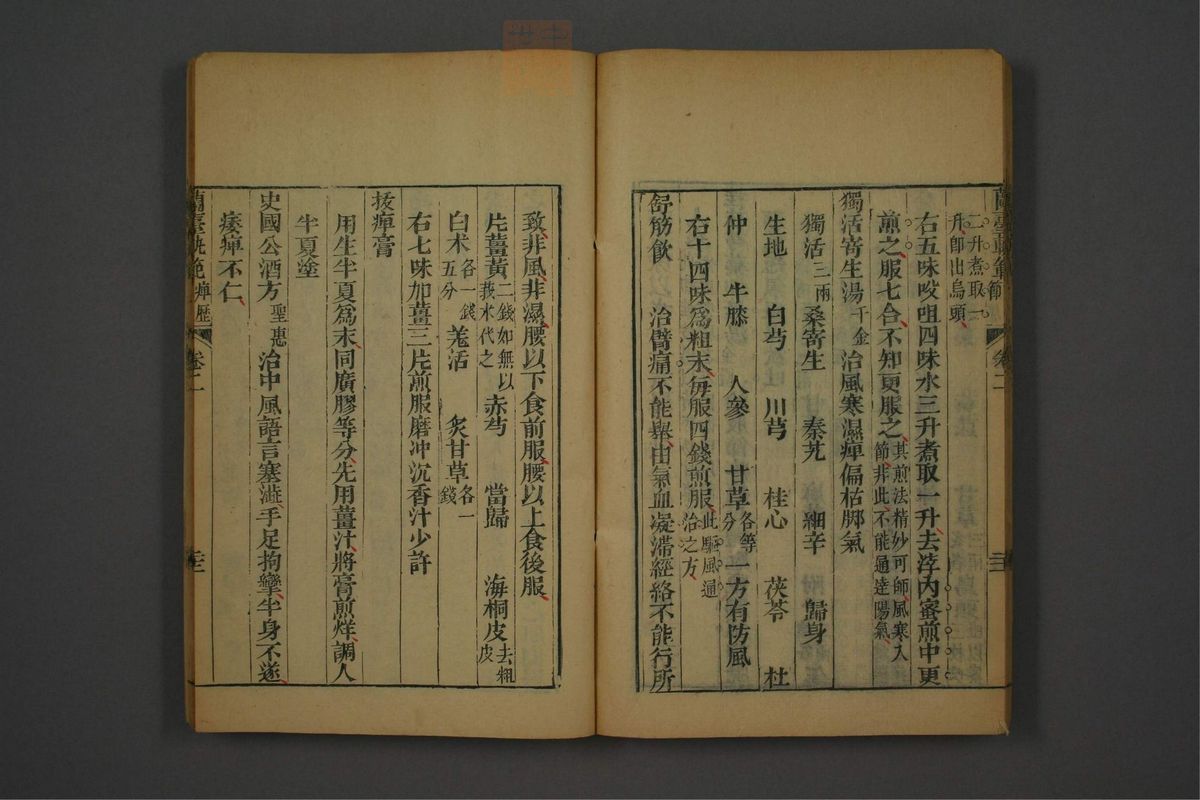 二升煮取一
升卽出烏頭
右五味㕮咀四味水三升煮取一升去滓內蜜煎中更
煎之服七合不知更服之其煎法精妙可師風寒入
節非此不能通達陽氣
獨活寄生湯千金治風寒濕痺偏枯脚氣
獨活三兩 桑寄生 秦艽 細辛 歸身
生地 白芍 川芎 桂心 茯苓 杜
仲 牛膝 人參 甘草各等分 一方有防風
右十四味爲粗末每服四錢煎服此驅風通
治之方
舒筋飲 治臂痛不能舉由氣血凝滯經絡不能行所
致非風非濕腰以下食前服腰以上食後服
片薑黃二錢如無以
莪朮代之 赤芍 當歸 海桐皮去粗皮
白朮各一錢
五分 羗活 炙甘草各一錢
右七味加薑三片煎服磨冲沉香汁少許
拔痺膏
用生半夏爲末同廣膠等分先用薑汁將膏煎烊調人
半夏塗
史國公酒方聖惠 治中風語言蹇澁手足拘攣半身不遂
痿痺不仁
蘭臺軌範 痺歷 卷二